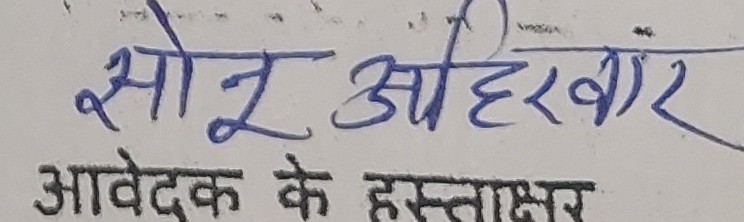 सोनू अहिरवार
आवेदक के हस्ताक्षर